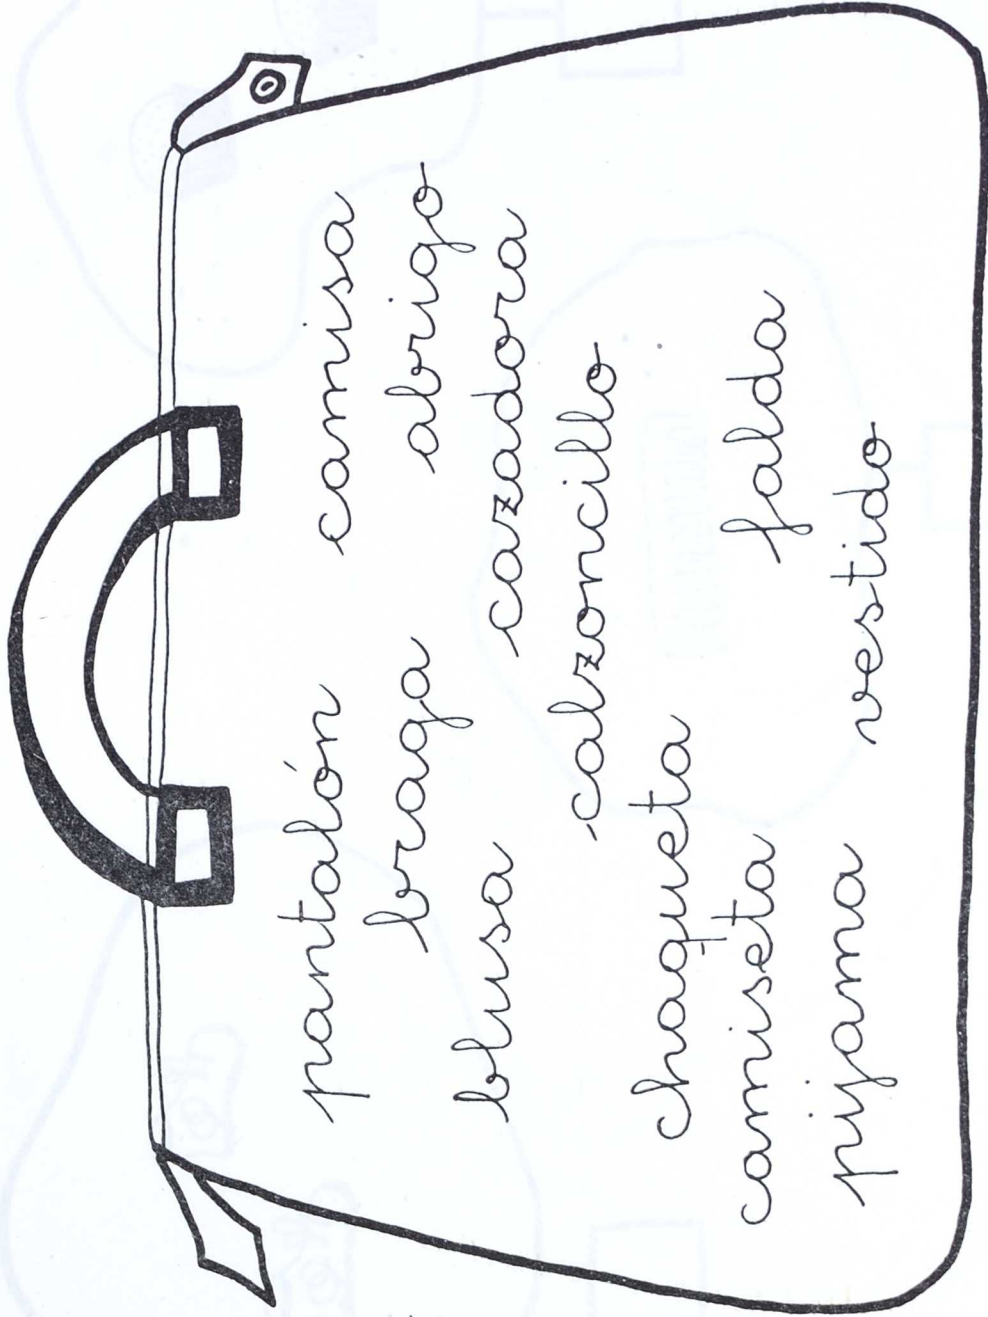 pantalón camisa
braga abrigo
blusa cazadora
calzoncillo
chaqueta
camiseta falda
pijama vestido